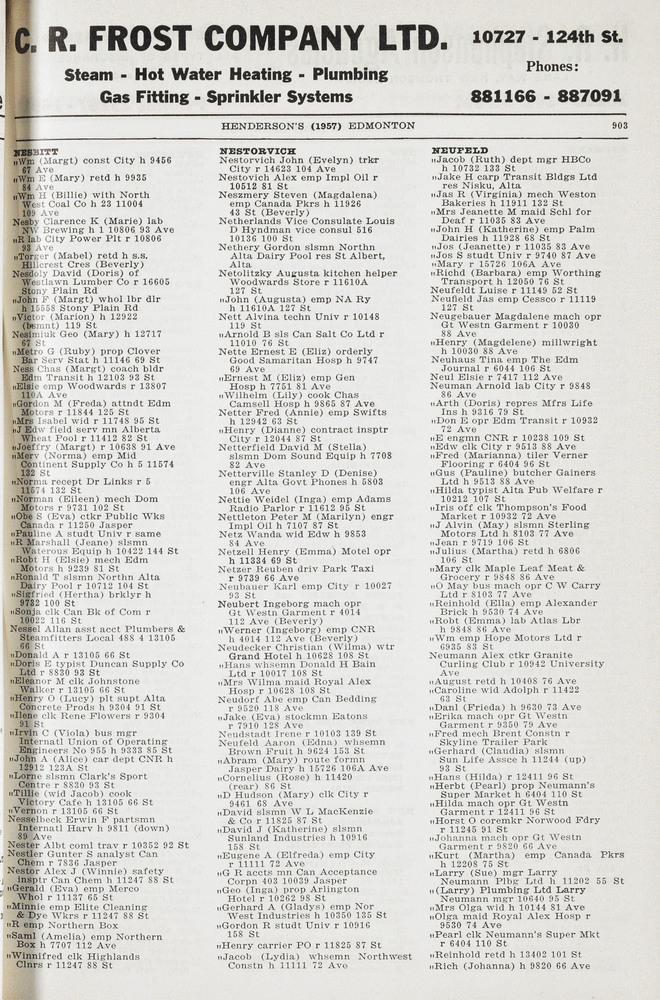 C. R. FROST COMPANY LTD.
10727 - 124th St.
Steam - Hot Water Heating - Plumbing
Gas Fitting - Sprinkler Systems
Phones:
881166 - 887091
HENDERSON'S (1957) EDMONTON
903
NESBITT
"Wm (Margt) const City h 9456
67 Ave
"Wm E (Mary) retd h 9935
84 Ave
"Wm H (Billie) with North
West Coal Co h 23 11004
109 Ave
Nesby Clarence K (Marie) lab
NW Brewing h 1 10806 93 Ave
"R lab City Power Plt r 10806
93 Ave
"Torger (Mabel) retd h s.s.
Hillcrest Cres (Beverly)
Nesdoly David (Doris) of
Westlawn Lumber Co r 16605
Stony Plain Rd
"John F (Margt) whol lbr dlr
h 15558 Stony Plain Rd
"Victor (Marion) h 12922
(bsmnt) 119 St
Nesimiuk Geo (Mary) h 12717
67 St
"Metro G (Ruby) prop Clover
Bar Serv Stat h 11146 69 St
Ness Chas (Margt) coach bldr
Edm Transit h 12103 93 St
"Elsie emp Woodwards r 13807
110A Ave
"Gordon M (Freda) attndt Edm
Motors r 11844 125 St
"Mrs Isabel wid r 11748 95 St
"J Edw field serv mn Alberta
Wheat Pool r 11412 82 St
"Joeffry (Margt) r 10638 91 Ave
"Merv (Norma) emp Mid
Continent Supply Co h 5 11574
132 St
"Norma recept Dr Links r 5
11574 132 St
"Norman (Eileen) mech Dom
Motors r 9731 102 St
"Obe S (Eva) ctkr Public Wks
Canada r 11250 Jasper
"Pauline A studt Univ r same
"R Marshall (Jeane) slsmn
Waterous Equip h 10422 144 St
"Robt H (Elsie) mech Edm
Motors h 9239 81 St
"Ronald T slsmn Northn Alta
Dairy Pool r 10712 104 St
"Sigfried (Hertha) brklyr h
9732 100 St
"Sonja clk Can Bk of Com r
10022 116 St
Nessel Allan asst acct Plumbers &
Steamfitters Local 488 4 13105
66 St
"Donald A r 13105 66 St
"Doris E typist Duncan Supply Co
Ltd r 8830 93 St
"Eleanor M clk Johnstone
Walker r 13105 66 St
"Henry O (Lucy) plt supt Alta
Concrete Prods h 9304 91 St
"Ilene clk Rene Flowers r 9304
91 St
"Irvin C (Viola) bus mgr
Internatl Union of Operating
Engineers No 955 h 9333 85 St
"John A (Alice) car dept CNR h
12912 123A St
"Lorne slsmn Clark's Sport
Centre r 8830 93 St
"Tillie (wid Jacob) cook
Victory Cafe h 13105 66 St
"Vernon r 13105 66 St
Nesselbeck Erwin F partsmn
Internatl Harv h 9811 (down)
89 Ave
Nester Albt coml trav r 10352 92 St
Nestler Gunter S analyst Can
Chem r 7836 Jasper
Nestor Alex J (Winnie) safety
insptr Can Chem h 11247 88 St
"Gerald (Eva) emp Merco
Whol r 11137 65 St
"Minnie emp Elite Cleaning
& Dye Wkrs r 11247 88 St
"R emp Northern Box
"Saml (Amelia) emp Northern
Box h 7707 112 Ave
"Winnifred clk Highlands
Clnrs r 11247 88 St
NESTORVICH
Nestorvich John (Evelyn) trkr
City r 14623 104 Ave
Nestovich Alex emp Impl Oil r
10512 81 St
Neszmery Steven (Magdalena)
emp Canada Pkrs h 11926
43 St (Beverly)
Netherlands Vice Consulate Louis
D Hyndman vice consul 516
10136 100 St
Nethery Gordon slsmn Northn
Alta Dairy Pool res St Albert,
Alta
Netolitzky Augusta kitchen helper
Woodwards Store r 11610A
127 St
"John (Augusta) emp NA Ry
h 11610A 127 St
Nett Alvina techn Univ r 10148
119 St
"Arnold B sls Can Salt Co Ltd r
11010 76 St
Nette Ernest E (Eliz) orderly
Good Samaritan Hosp h 9747
69 Ave
"Ernest M (Eliz) emp Gen
Hosp h 7751 81 Ave
"Wilhelm (Lily) cook Chas
Camsell Hosp h 9865 87 Ave
Netter Fred (Annie) emp Swifts
h 12942 63 St
"Henry (Dianne) contract insptr
City r 12044 87 St
Netterfield David M (Stella)
slsmn Dom Sound Equip h 7708
82 Ave
Netterville Stanley D (Denise)
engr Alta Govt Phones h 5803
106 Ave
Nettie Weidel (Inga) emp Adams
Radio Parlor r 11612 95 St
Nettleton Peter M (Marilyn) engr
Impl Oil h 7107 87 St
Netz Wanda wid Edw h 9853
84 Ave
Netzell Henry (Emma) Motel opr
h 11334 69 St
Netzer Reuben driv Park Taxi
r 9739 66 Ave
Neubauer Karl emp City r 10027
93 St
Neubert Ingeborg mach opr
Gt Westn Garment r 4014
112 Ave (Beverly)
"Werner (Ingeborg) emp CNR
h 4014 112 Ave (Beverly)
Neudecker Christian (Wilma) wtr
Grand Hotel h 10628 108 St
"Hans whsemn Donald H Bain
Ltd r 10017 108 St
"Mrs Wilma maid Royal Alex
Hosp r 10628 108 St
Neudorf Abe emp Can Bedding
r 9520 118 Ave
"Jake (Eva) stockmn Eatons
r 7910 128 Ave
Neudstadt Irene r 10103 139 St
Neufeld Aaron (Edna) whsemn
Brown Fruit h 9624 153 St
"Abram (Mary) route formn
Jasper Dairy h 15726 106A Ave
"Cornelius (Rose) h 11420
(rear) 86 St
"D Hudson (Mary) clk City r
9461 68 Ave
"David slsmn W L MacKenzie
& Co r 11825 87 St
"David J (Katherine) slsmn
Sunland Industries h 10916
158 St
"Eugene A (Elfreda) emp City
r 11111 72 Ave
"G R accts mn Can Acceptance
Corpn 403 10039 Jasper
"Geo (Inga) prop Arlington
Hotel r 10262 98 St
"Gerhard A (Gladys) emp Nor
West Industries h 10350 135 St
"Gordon R studt Univ r 10916
158 St
"Henry carrier PO r 11825 87 St
"Jacob (Lydia) whsemn Northwest
Constn h 11111 72 Ave
NEUFELD
"Jacob (Ruth) dept mgr HBCo
h 10732 133 St
"Jake H carp Transit Bldgs Ltd
res Nisku, Alta
"Jas R (Virginia) mech Weston
Bakeries h 11911 132 St
"Mrs Jeanette M maid Schl for
Deaf r 11035 83 Ave
"John H (Katherine) emp Palm
Dairies h 11928 68 St
"Jos (Jeanette) r 11035 83 Ave
"Jos S studt Univ r 9740 87 Ave
"Mary r 15726 106A Ave
"Richd (Barbara) emp Worthing
Transport h 12050 76 St
Neufeldt Luise r 11149 52 St
Neufield Jas emp Cessco r 11119
127 St
Neugebauer Magdalene mach opr
Gt Westn Garment r 10030
88 Ave
"Henry (Magdelene) millwright
h 10030 88 Ave
Neuhaus Tina emp The Edm
Journal r 6044 106 St
Neul Elsie r 7417 112 Ave
Neuman Arnold lab City r 9848
86 Ave
"Arth (Doris) repres Mfrs Life
Ins h 9316 79 St
"Don E opr Edm Transit r 10932
72 Ave
"E engmn CNR r 10238 109 St
"Edw clk City r 9513 88 Ave
"Fred (Marianna) tiler Verner
Flooring r 6404 96 St
"Gus (Pauline) butcher Gainers
Ltd h 9513 88 Ave
"Hilda typist Alta Pub Welfare r
10212 107 St
"Iris off clk Thompson's Food
Market r 10932 72 Ave
"J Alvin (May) slsmn Sterling
Motors Ltd h 8103 77 Ave
"Jean r 9719 106 St
"Julius (Martha) retd h 6806
106 St
"Mary clk Maple Leaf Meat &
Grocery r 9848 86 Ave
"O May bus mach opr C W Carry
Ltd r 8103 77 Ave
"Reinhold (Ella) emp Alexander
Brick h 9530 74 Ave
"Robt (Emma) lab Atlas Lbr
h 9848 86 Ave
"Wm emp Hope Motors Ltd r
6935 83 St
Neumann Alex ctkr Granite
Curling Club r 10942 University
Ave
"August retd h 10408 76 Ave
"Caroline wid Adolph r 11422
63 St
"Danl (Frieda) h 9630 73 Ave
"Erika mach opr Gt Westn
Garment r 9350 79 Ave
"Fred mech Brent Constn r
Skyline Trailer Park
"Gerhard (Claudia) slsmn
Sun Life Assce h 11244 (up)
93 St
"Hans (Hilda) r 12411 96 St
"Herbt (Pearl) prop Neumann's
Super Market h 6404 110 St
"Hilda mach opr Gt Westn
Garment r 12411 96 St
"Horst O coremkr Norwood Fdry
r 11245 91 St
"Johanna mach opr Gt Westn
Garment r 9820 66 Ave
"Kurt (Martha) emp Canada Pkrs
h 12208 75 St
"Larry (Sue) mgr Larry
Neumann Plbg Ltd h 11202 55 St
"(Larry) Plumbing Ltd Larry
Neumann mgr 10640 95 St
"Mrs Olga wid h 10144 81 Ave
"Olga maid Royal Alex Hosp r
9530 74 Ave
"Pearl clk Neumann's Super Mkt
r 6404 110 St
"Reinhold retd h 13402 101 St
"Rich (Johanna) h 9820 66 Ave